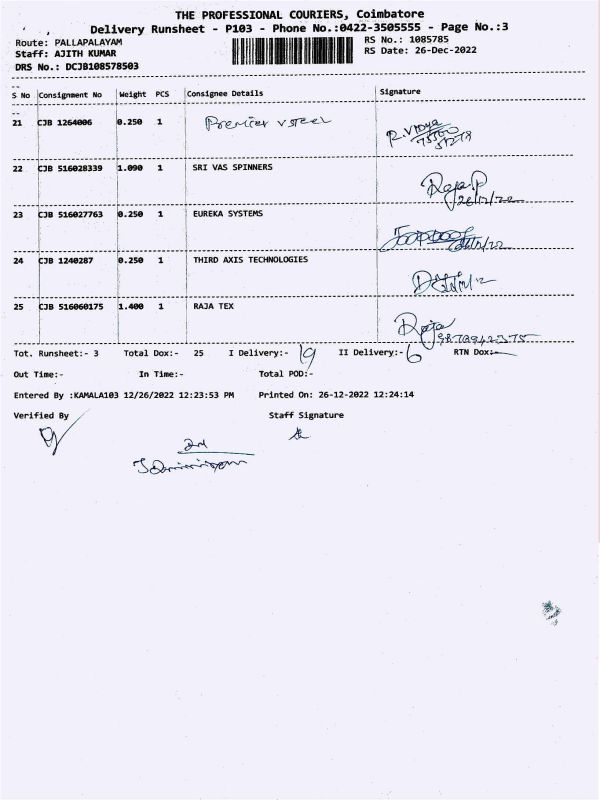 THE PROFESSIONAL COURIERS, Coimbatore
Delivery Runsheet - P103 - Phone No.:0422-3505555 - Page No.:3
Route: PALLAPALAYAM
RS No.: 1085785
Staff: AJITH KUMAR
RS Date: 26-Dec-2022
DRS No.: DCJB108578503
S No Consignment No Weight PCS Consignee Details Signature
21 CJB 1264006 0.250 1 Premier v steel
R. Vidya
22 CJB 516028339 1.090 1 SRI VAS SPINNERS
Raja.P
26/12/22
23 CJB 516027763 0.250 1 EUREKA SYSTEMS
24 CJB 1240287 0.250 1 THIRD AXIS TECHNOLOGIES
25 CJB 516060175 1.400 1 RAJA TEX
Raja
9878942375
Tot. Runsheet:- 3 Total Dox:- 25 I Delivery:- 19 II Delivery:- 6 RTN Dox:-
Out Time:- In Time:- Total POD:-
Entered By :KAMALA103 12/26/2022 12:23:53 PM Printed On: 26-12-2022 12:24:14
Verified By Staff Signature